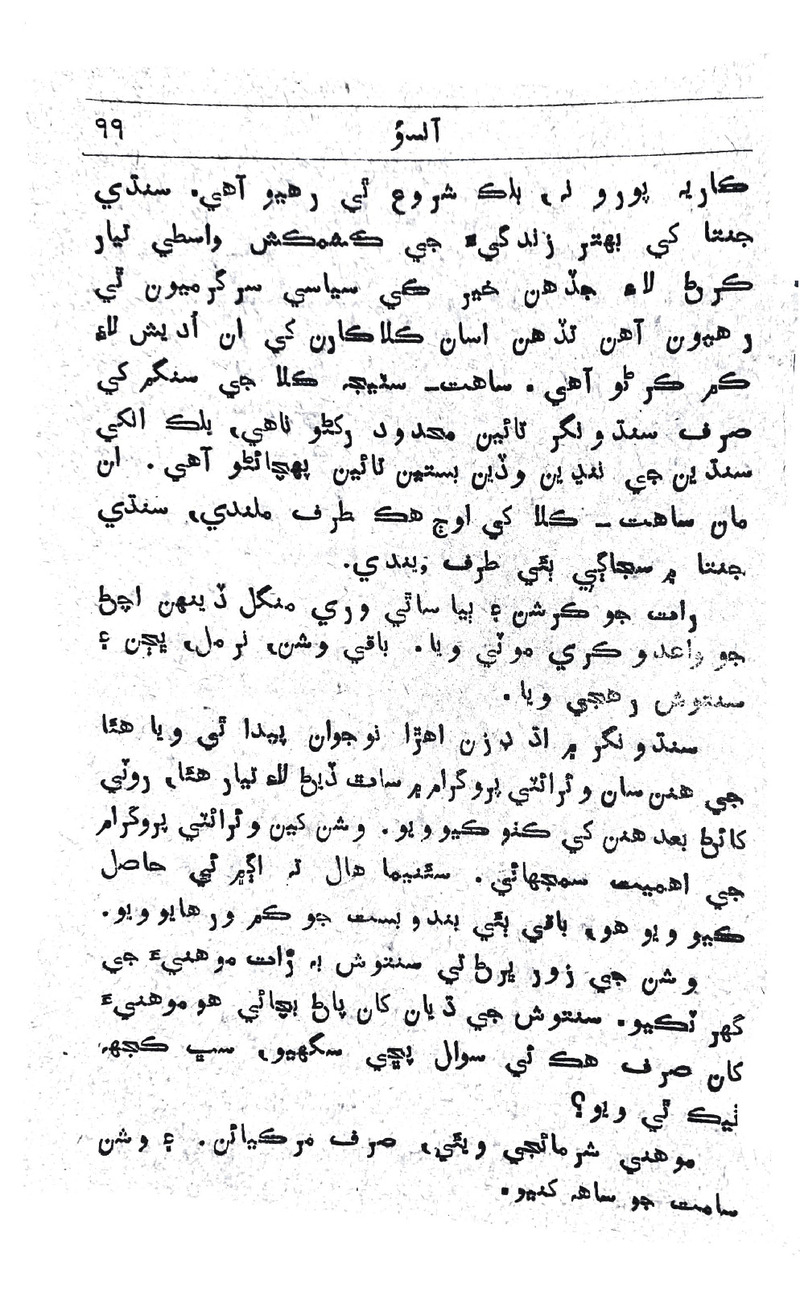 آلسؤ ۹۹
ڪاريہ پورو نہ، بلڪ شروع ٿي رهيو آهي. سنڌي
جنتا کي بهتر زندگيءَ جي ڪشمڪش واسطي تيار
ڪرڻ لاءِ جڏهن خير کي سياسي سرگرميون ٿي
رهيون آهن تڏهن اسان ڪلاڪارن کي ان اُديش لاءِ
ڪم ڪرڻو آهي. ساهت۔ سٽيج ڪلا جي سنگم کي
صرف سنڌو نگر تائين محدود رکڻو ناهي، بلڪ انکي
سنڌين جي ننڍين وڏين بستين تائين پهچائڻو آهي. ان
مان ساهت۔ ڪلا کي اوچ هڪ طرف ملندي، سنڌي
جنتا ۾ سجاڳي ٻئي طرف ويندي.
رات جو ڪرشن ۽ ٻيا ساٿي وري منگل ڏينهن اچڻ
جو واعدو ڪري موٽي ويا. باقي وشن، نرمل، ڀڄن ۽
سنتوش رهجي ويا.
سنڌو نگر ۾ اڌ ڊزن اهڙا نوجوان پيدا ٿي ويا هئا
جي هنن سان ورائٽي پروگرام ۾ ساٿ ڏيڻ لاءِ تيار هئا، روٽي
کائڻ بعد هنن کي ڪٺو ڪيو ويو. وشن کين ورائٽي پروگرام
جي اهميت سمجهائي. سئنيما هال تہ اڳ۾ ئي حاصل
ڪيو ويو هو، باقي ٻئي بندوبست جو ڪم ورهايو ويو.
وشن جي زور ڀرڻ تي سنتوش بہ رات موهنيءَ جي
گهر ٽڪيو. سنتوش جي ڌيان کان پاڻ بچائي هو موهنيءَ
کان صرف هڪ ئي سوال پڇي سگهيو، سڀ ڪجهہ
ٺيڪ ٿي ويو؟
موهني شرمائجي ويئي، صرف مرڪيائن. ۽ وشن
سامت جو ساهہ کنيو.